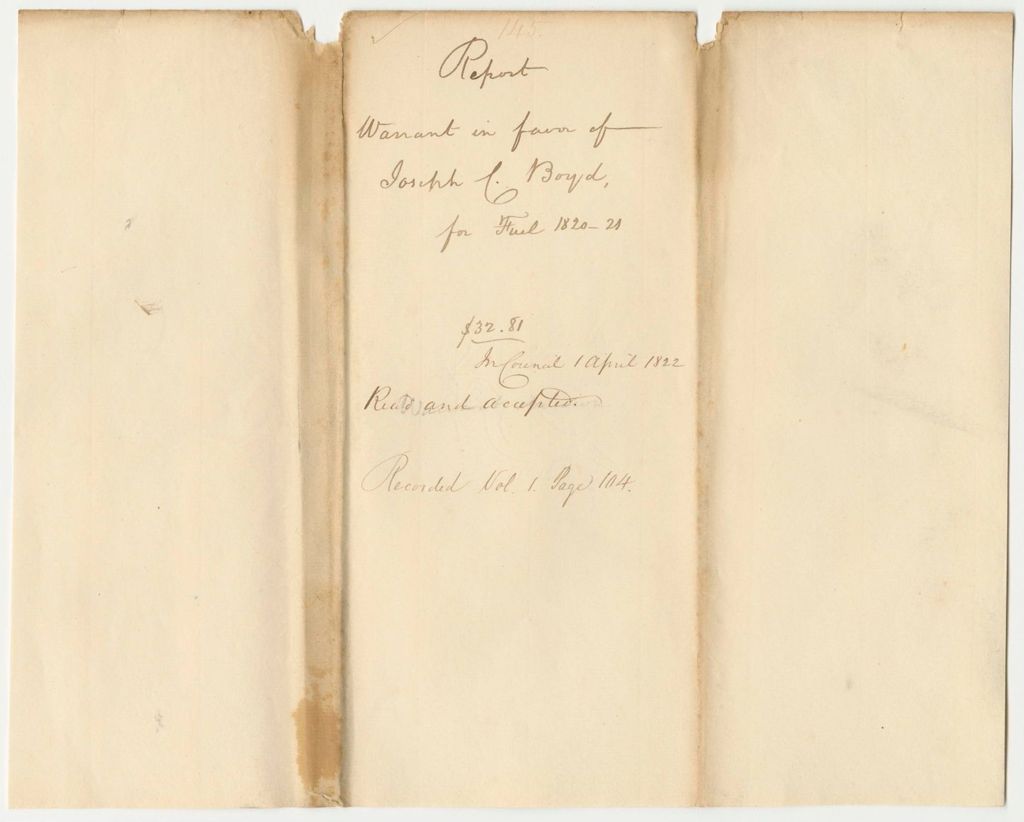 145.
Report
Warrant in favor of
Joseph C. Boyd,
for Fuel 1820-21
$32.81
In Council 1 April 1822
Read and accepted.
Recorded Vol. 1. Page 104.